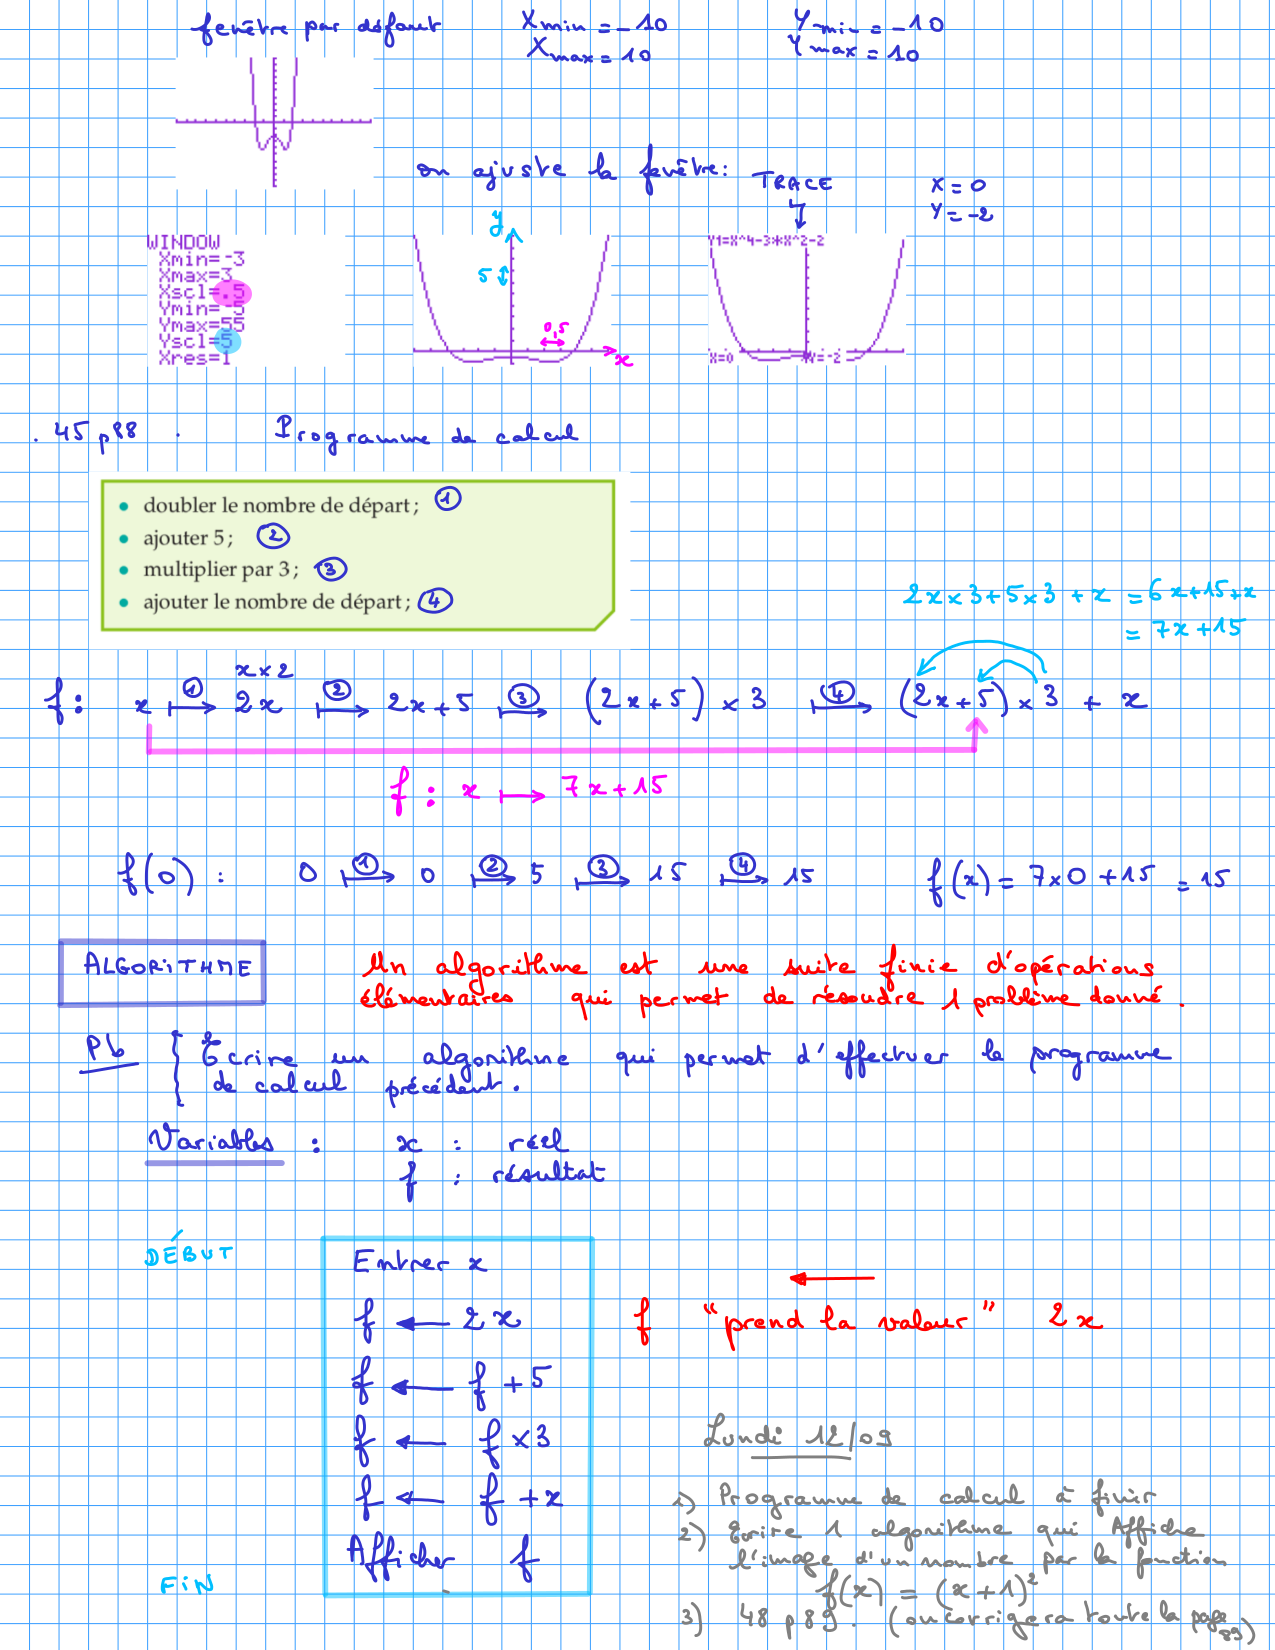 fenêtre par défaut Xmin = -10 Ymin = -10
Xmax = 10 Ymax = 10
on ajuste la fenêtre : TRACE X = 0
Y = -2
WINDOW
Xmin=-3
Xmax=3
Xscl=.5
Ymin=-5
Ymax=55
Yscl=5
Xres=1
y
5
0,5
x
Y1=X^4-3*X^2-2
X=0 Y=-2
. 45 p88 . Programme de calcul
• doubler le nombre de départ ; ①
• ajouter 5 ; ②
• multiplier par 3 ; ③
• ajouter le nombre de départ ; ④
2x×3+5×3 + x = 6x+15+x
= 7x+15
x×2
f : x ①⟼ 2x ②⟼ 2x+5 ③⟼ (2x+5) × 3 ④⟼ (2x+5) × 3 + x
f : x ⟼ 7x+15
f(0) : 0 ①⟼ 0 ②⟼ 5 ③⟼ 15 ④⟼ 15 f(x) = 7×0 +15 = 15
ALGORITHME Un algorithme est une suite finie d'opérations
élémentaires qui permet de résoudre 1 problème donné .
Pb { Ecrire un algorithme qui permet d'effectuer le programme
de calcul précédent .
Variables : x : réel
f : résultat
DÉBUT
Entrer x
←
f ← 2x f "prend la valeur" 2x
f ← f + 5
f ← f × 3
f ← f + x
Afficher f
FIN
Lundi 12/09
1) Programme de calcul à finir
2) Ecrire 1 algorithme qui Affiche
l'image d'un nombre par la fonction
f(x) = (x+1)²
3) 48 p89 . (on corrigera toute la page 89)